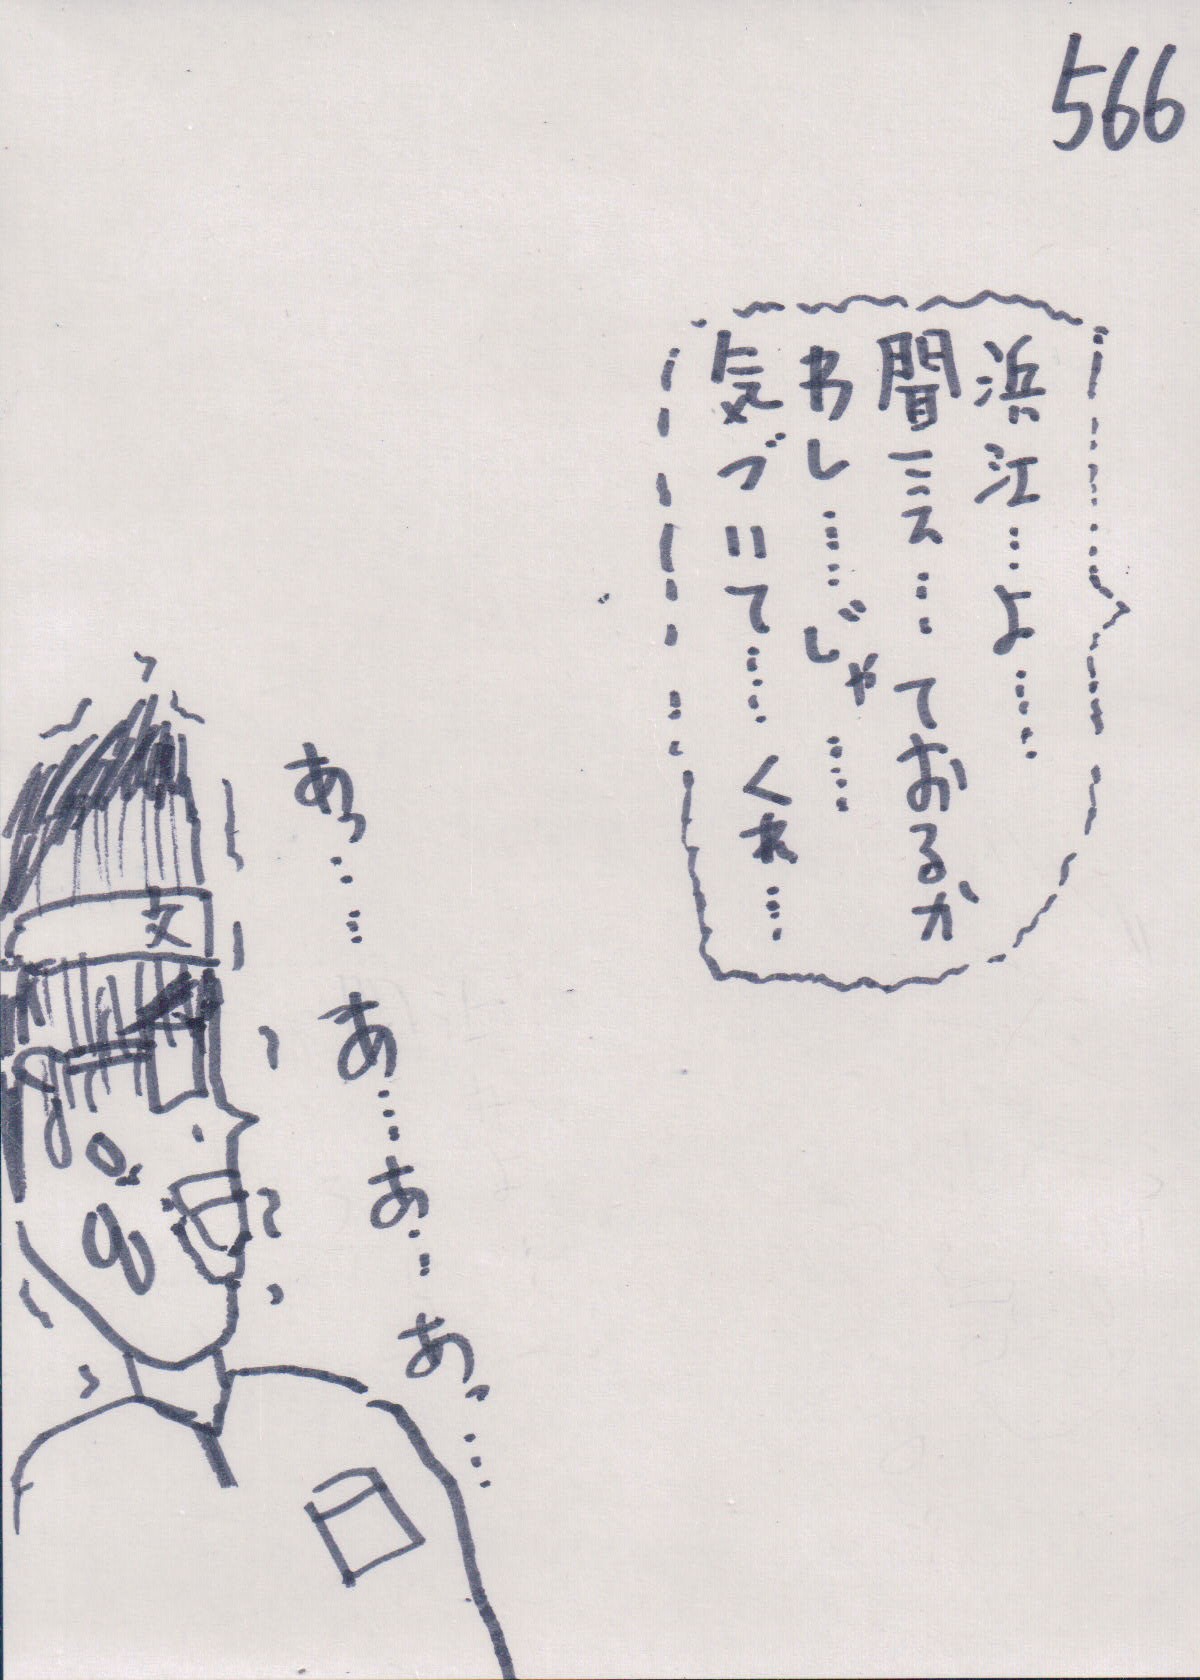 566
浜江…よ……
聞こえ……ておるか
わし……じゃ……
気づいて……くれ……
あっ……
あ……
あ……
あっ……
文